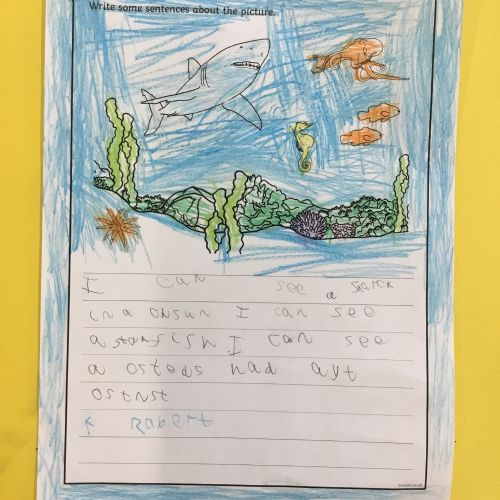 Write some sentences about the picture.
I can see a shark
in a ohsun I can see
a starfish I can see
a osteds had ayt
ostnst
Rabert
twinkl.co.uk